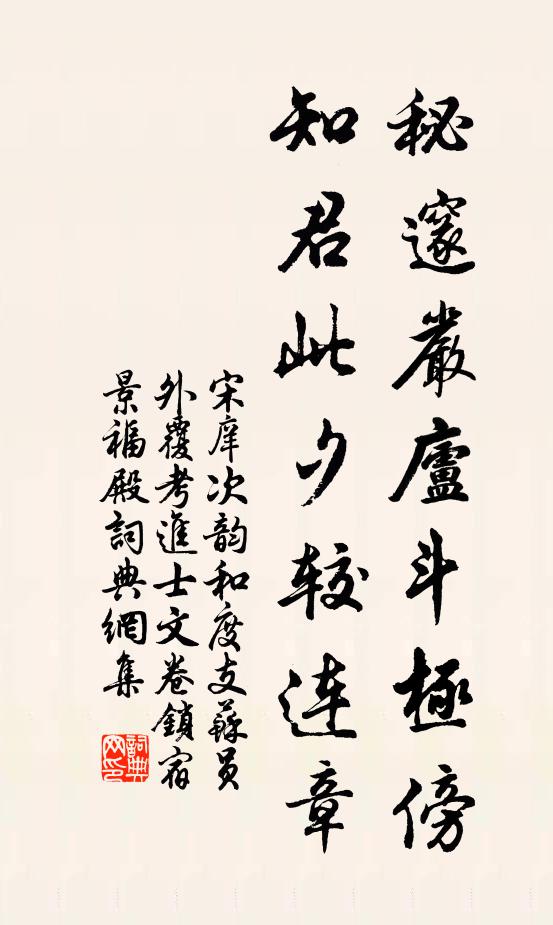 秘邃嚴廬斗極傍
知君此夕較連章
宋庠次韵和度支蘇员
外覆考進士文卷鎖宿
景福殿詞典網集
詞典网印